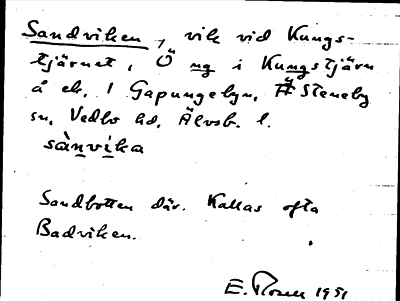 Sandviken, vik vid Kungs-
tjärnet, Ö ng i Kungstjärn
å ek. 1 Gapungebyn, Steneby
sn, Vedbo hd, Älvsb. l.
sànvika
Sandbotten där. Kallas ofta
Badviken.
E. 1951